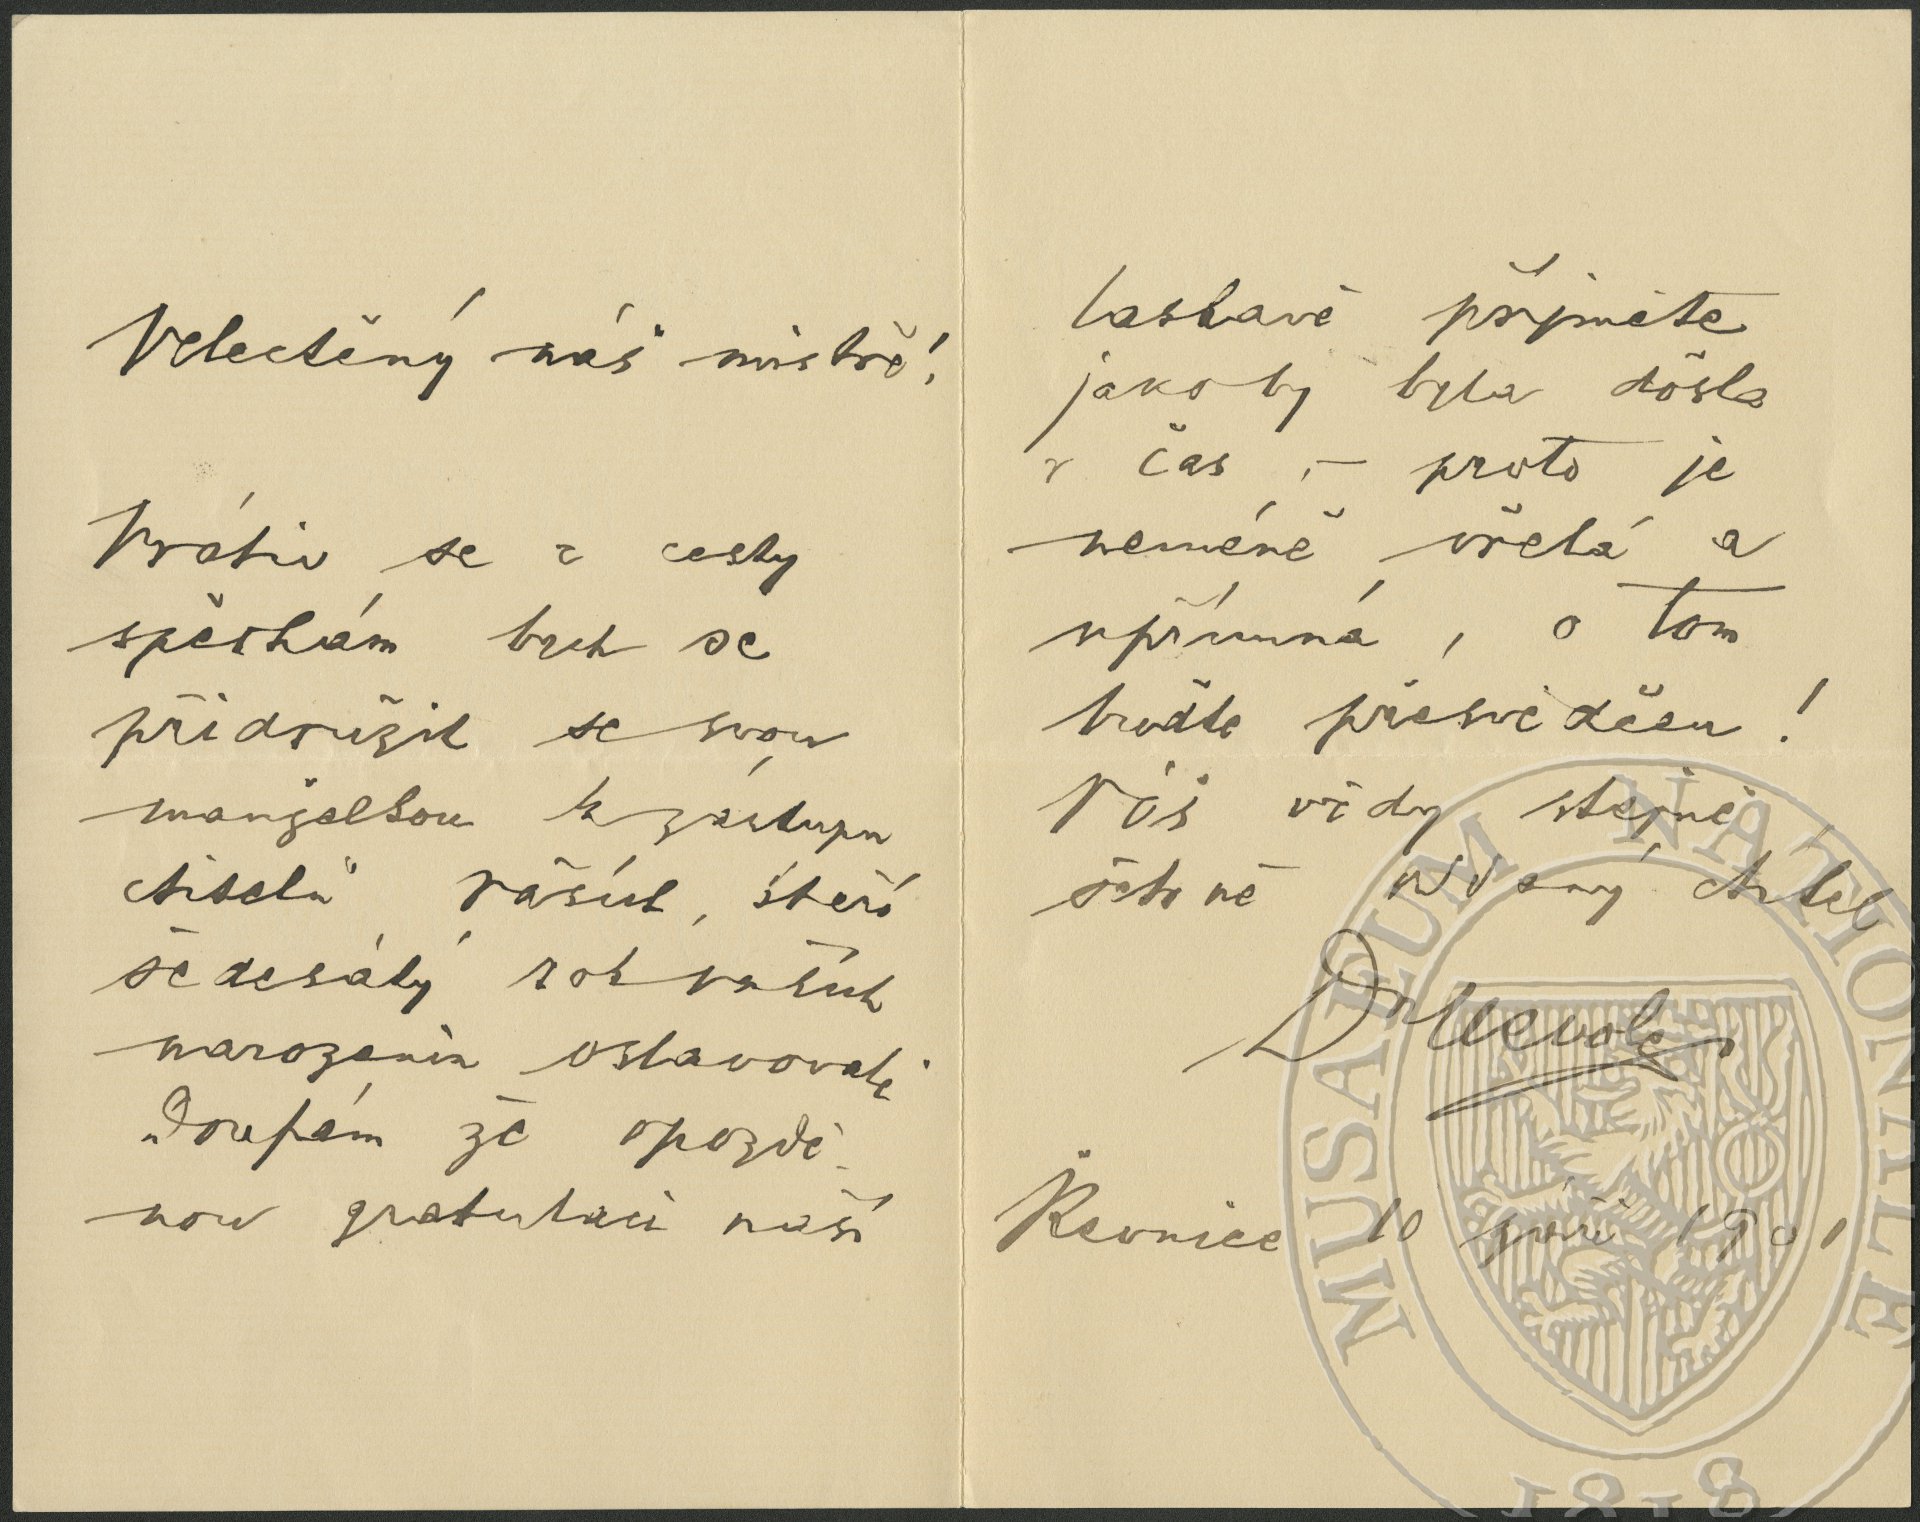 Velectěný náš mistře!
Vrátiv se z cesty
spěchám bych se
přidružil se svou
manželkou k zástupu
ctitelů Vašich, kteří
šedesátý rok Vašich
narozenin oslavovali
Doufám že opozdě-
nou gratulaci naši
laskavě přijměte
jakoby byla došla
v čas, – proto je
neméně vřelá a
upřímná, o tom
buďte přesvědčen!
Váš vždy stejně
oddaný ctitel
Dr
Řevnice 10 září 1901
MUSAEUM NATIONALE
1818